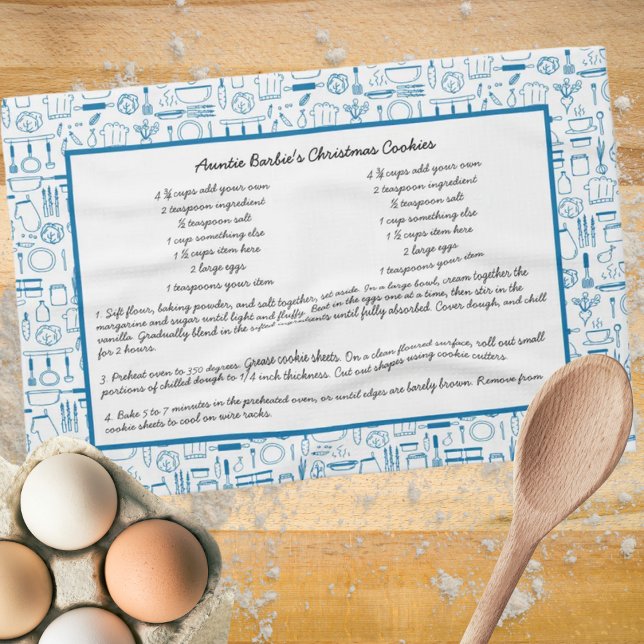 Auntie Barbie's Christmas Cookies
4 ¾ cups add your own
2 teaspoon ingredient
½ teaspoon salt
1 cup something else
1 ½ cups item here
2 large eggs
1 teaspoons your item
4 ¾ cups add your own
2 teaspoon ingredient
½ teaspoon salt
1 cup something else
1 ½ cups item here
2 large eggs
1 teaspoons your item
1. Sift flour, baking powder, and salt together, set aside. In a large bowl, cream together the
margarine and sugar until light and fluffy. Beat in the eggs one at a time, then stir in the
vanilla. Gradually blend in the sifted ingredients until fully absorbed. Cover dough, and chill
for 2 hours.
3. Preheat oven to 350 degrees. Grease cookie sheets. On a clean floured surface, roll out small
portions of chilled dough to 1/4 inch thickness. Cut out shapes using cookie cutters.
4. Bake 5 to 7 minutes in the preheated oven, or until edges are barely brown. Remove from
cookie sheets to cool on wire racks.